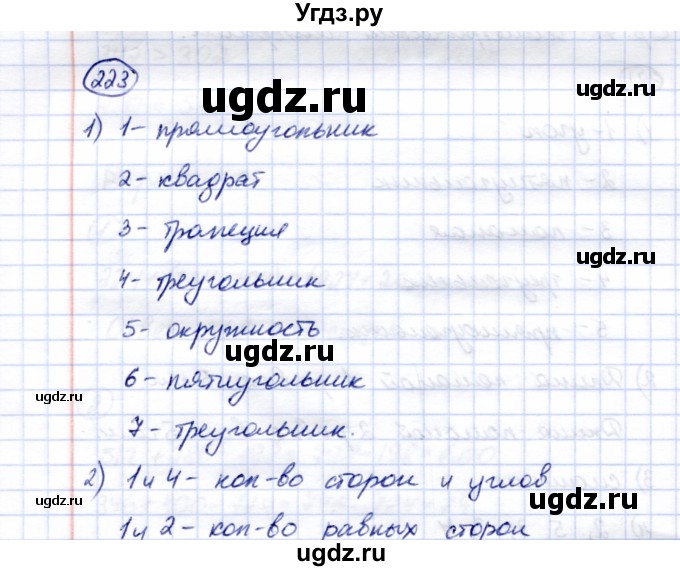 Угдз.ру
223
ugdz.ru
1) 1- прямоугольник
ugdz.ru
2- квадрат
3- трапеция
ugdz.ru ugdz.ru
4- треугольник
5- окружность
ugdz.ru
6- пятиугольник
ugdz.ru
7- треугольник.
ugdz.ru
2) 1 и 4- кол-во сторон и углов
ugdz.ru
1 и 2- кол-во равных сторон
ugdz.ru